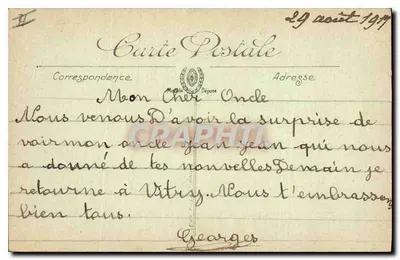 II
29 août 19
Carte Postale
Correspondance Adresse
Mon Cher Oncle
Nous venons D'avoir la surprise de
voir mon oncle jean jean qui nous
a donné de tes nouvelles Demain je
retourne à Vitry. Nous t'embrassons
bien tous.
Georges
CPARAMA